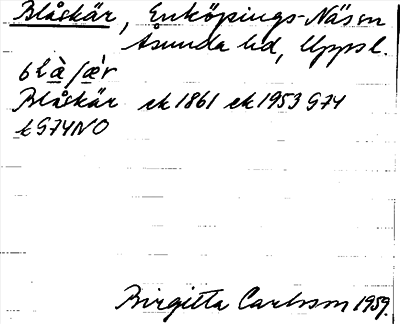 Blåskär, Enköpings-Näs sn
Åsunda hd, Uppsl.
blà ʃæ̀r
Blåskär ek 1861 ek 1953 G74
tG74NO
Birgitta Carlsson 1959.